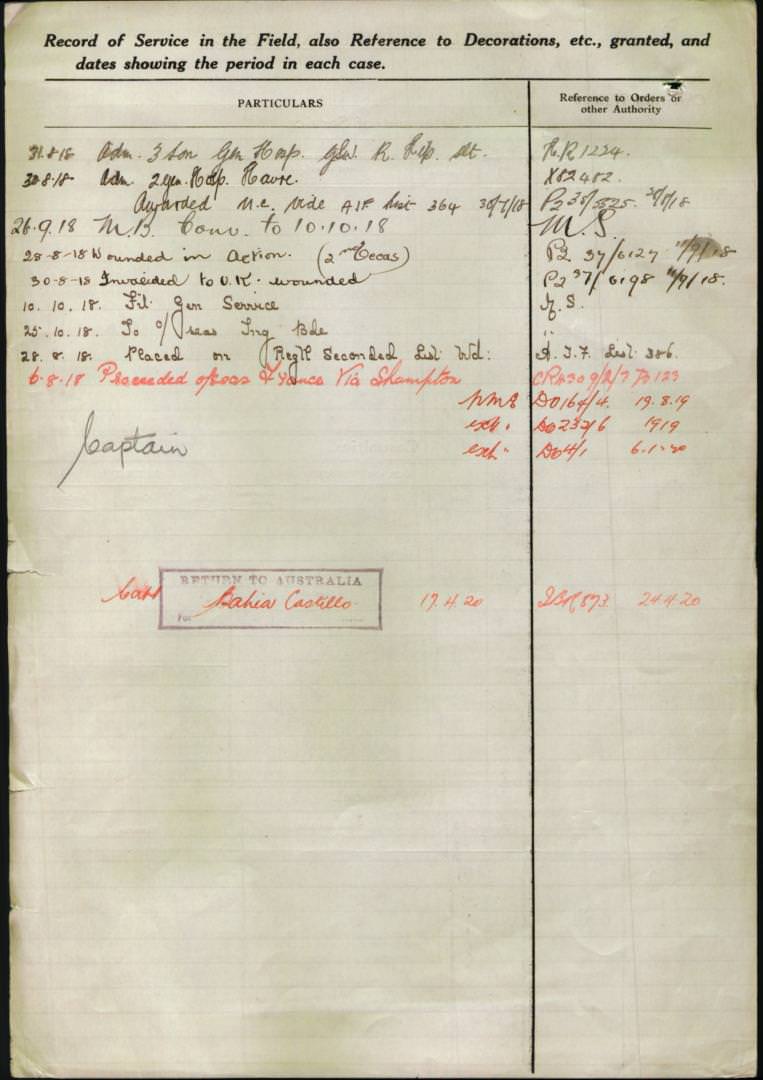 Record of Service in the Field, also Reference to Decorations, etc., granted, and
dates showing the period in each case.
PARTICULARS
Reference to Orders or
other Authority
31.8.18 Adm. 3 Lon Gen Hosp. GSW. R. Hip. slt. H.R 1224.
30.8.18 Adm. 2 gen. Hosp. Havre. X82482.
Awarded M.C. vide AIF List 364 30/7/18 P2 38/5825
26.9.18 M.B. Conv. to 10.10.18 M.S.
28-8-18 Wounded in Action. (2nd Occas) P2 37/6127 11/9/18
30-8-18 Invalided to U.K. wounded P2 37/6198 11/9/18.
10.10.18. Fit Gen Service M.S.
25.10.18. To O/seas Trng Bde "
28.8.18. Placed on Regtl Seconded List Wd: A.I.F. List 386.
6.8.18 Proceeded o/seas France Via Shampton
DO164/4. 19.8.19
exh. DO232/6 1919
exh. DO4/1 6.1.20
Captain
RETURN TO AUSTRALIA
Capt Bahia Castillo 17.4.20 24.4.20
Per